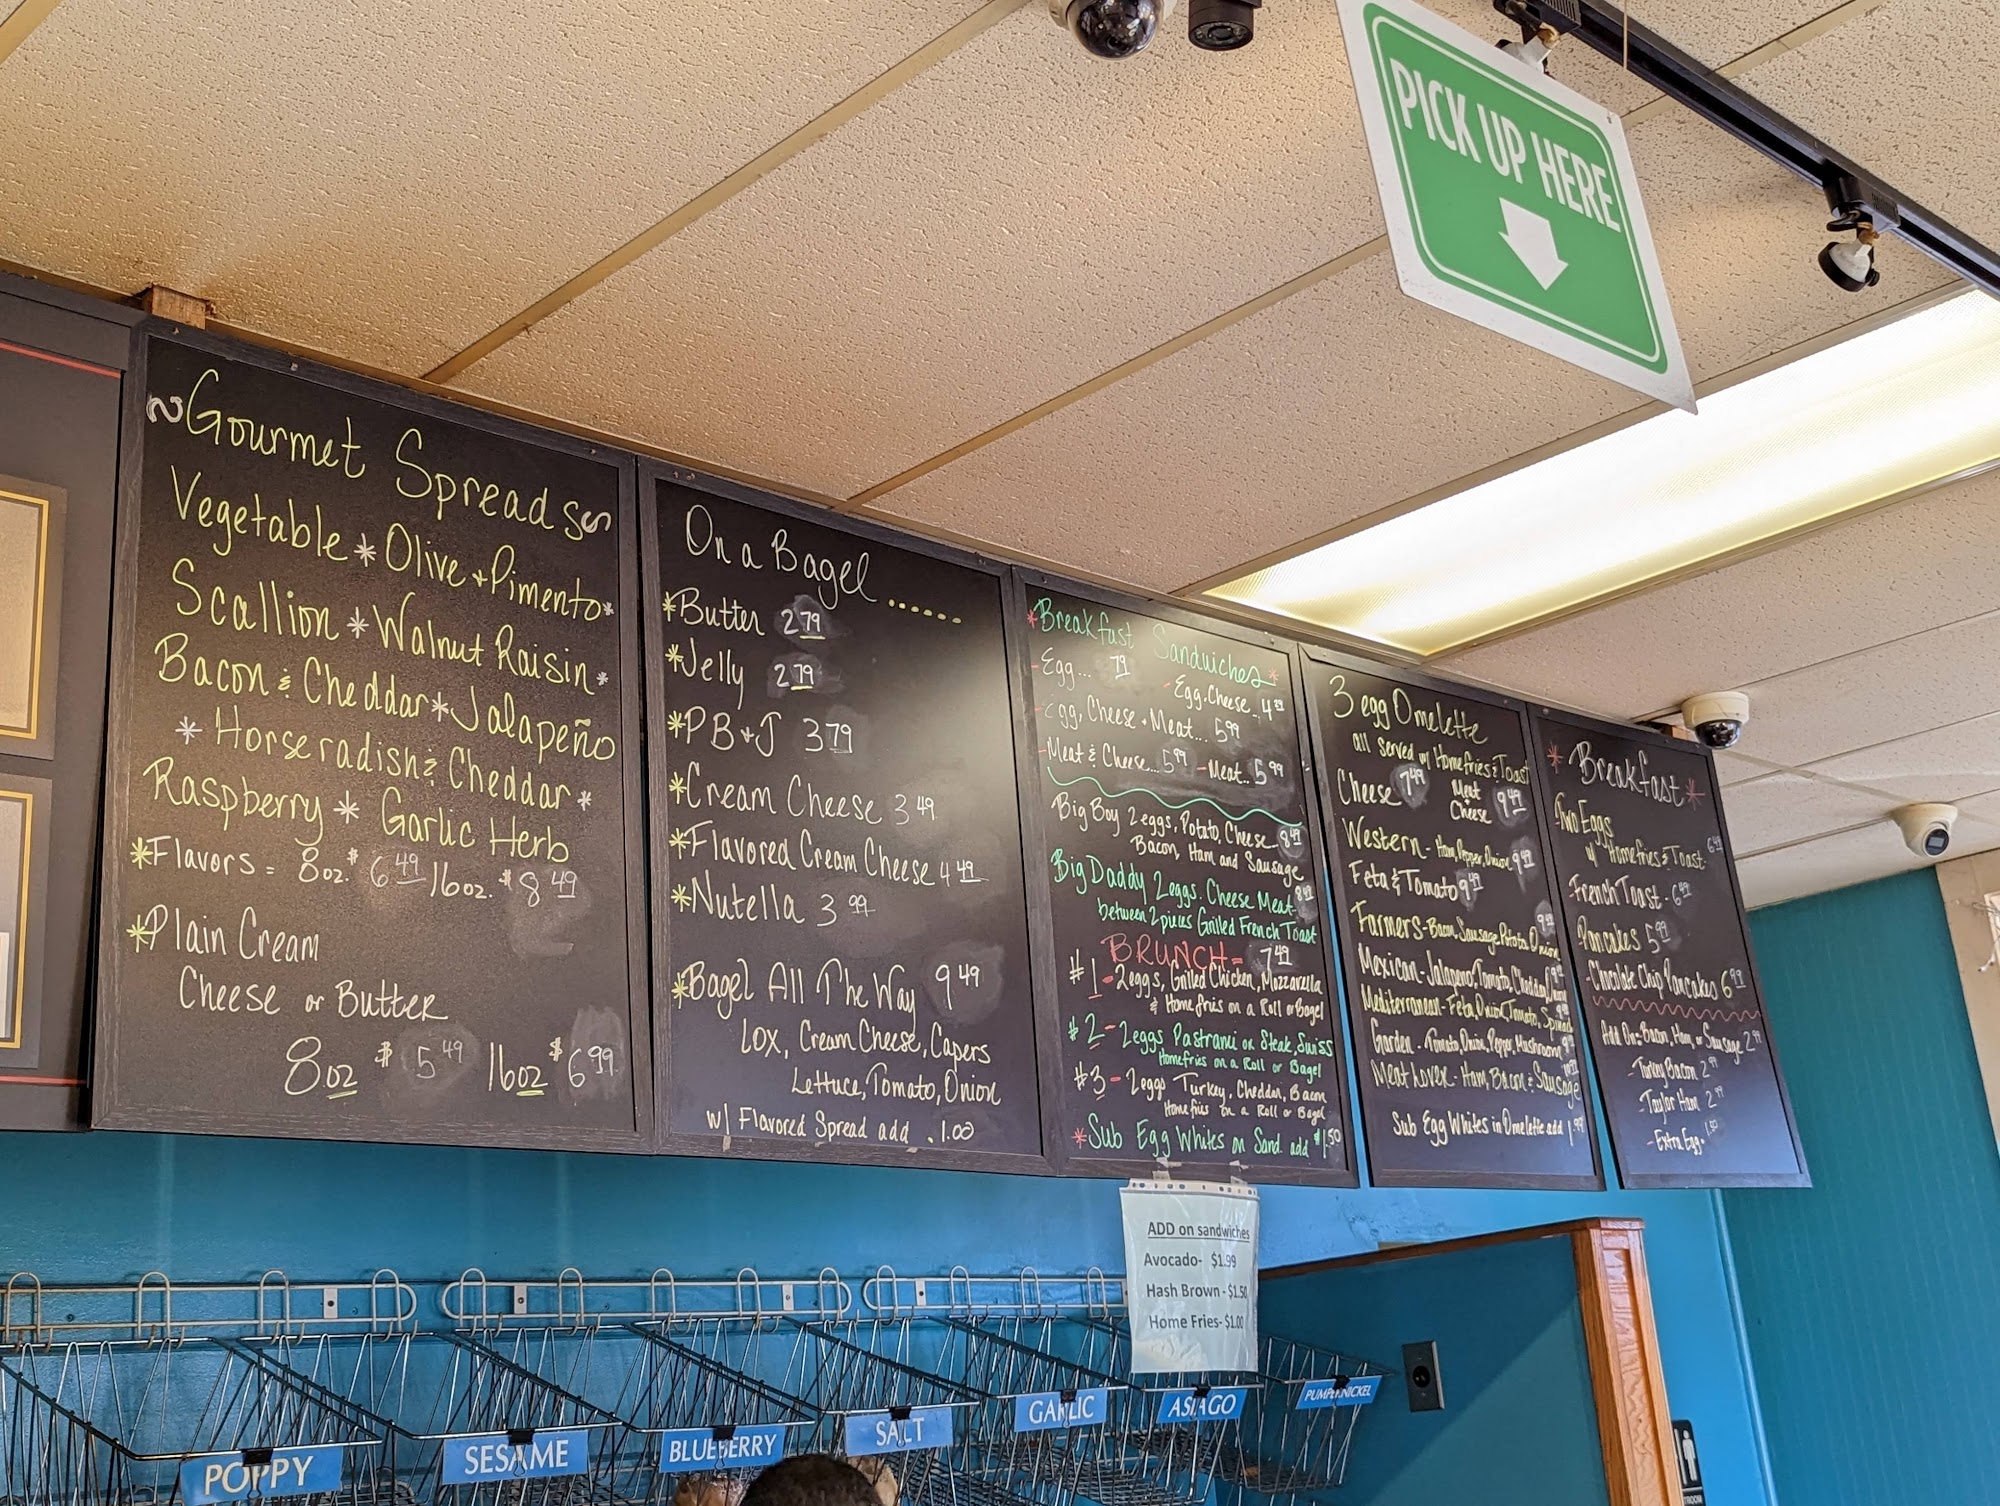 PICK UP HERE
Gourmet Spreads
Vegetable * Olive + Pimento *
Scallion * Walnut Raisin *
Bacon & Cheddar * Jalapeño
* Horseradish & Cheddar *
Raspberry * Garlic Herb
* Flavors = 8oz. $6.49 / 16oz. $8.49
* Plain Cream
Cheese or Butter
8oz $5.49 16oz $6.99
On a Bagel ......
* Butter 2.79
* Jelly 2.79
* PB+J 3.79
* Cream Cheese 3.49
* Flavored Cream Cheese 4.49
* Nutella 3.99
* Bagel All The Way 9.49
Lox, Cream Cheese, Capers
Lettuce, Tomato, Onion
w/ Flavored Spread add .1.00
* Breakfast Sandwiches *
- Egg... 79
- Egg, Cheese..
- Egg, Cheese + Meat... 5.99
- Meat & Cheese... 5.99 - Meat.. 5.99
Big Boy 2 eggs, Potato, Cheese 8.49
Bacon, Ham and Sausage
Big Daddy 2 eggs. Cheese Meat 8.49
between 2 pieces Grilled French Toast
BRUNCH = 7.49
#1 - 2 eggs, Grilled Chicken, Mozzarella
& Homefries on a Roll or Bagel
#2 - 2 eggs Pastrami or Steak, Swiss
Homefries on a Roll or Bagel
#3 - 2 eggs Turkey, Cheddar, Bacon
Homefries on a Roll or Bagel
* Sub Egg Whites on Sand. add $1.50
3 egg Omelette
all served w/ Homefries & Toast
Cheese 7.49 Meat Cheese 9.49
Western - Ham, Pepper, Onion 9.49
Feta & Tomato 9.49
Farmers - Bacon, Sausage Potato Onion 9.49
Mexican - Jalapeno, Tomato, Cheddar
Mediterranean - Feta, Onion, Tomato, Spinach
Garden - Tomato, Onion, Pepper Mushroom
Meat Lover - Ham, Bacon & Sausage
Sub Egg Whites in Omelette add 1.99
* Breakfast *
- Two Eggs
w/ Homefries & Toast 6.49
- French Toast - 6.49
- Pancakes 5.99
- Chocolate Chip Pancakes 6.99
Add On: Bacon, Ham, or Sausage 2.99
- Turkey Bacon 2.99
- Taylor Ham 2.99
- Extra Egg - 1.50
ADD on sandwiches
Avocado- $1.99
Hash Brown - $1.50
Home Fries- $1.00
POPPY
SESAME
BLUEBERRY
SALT
GARLIC
ASIAGO
PUMPERNICKEL